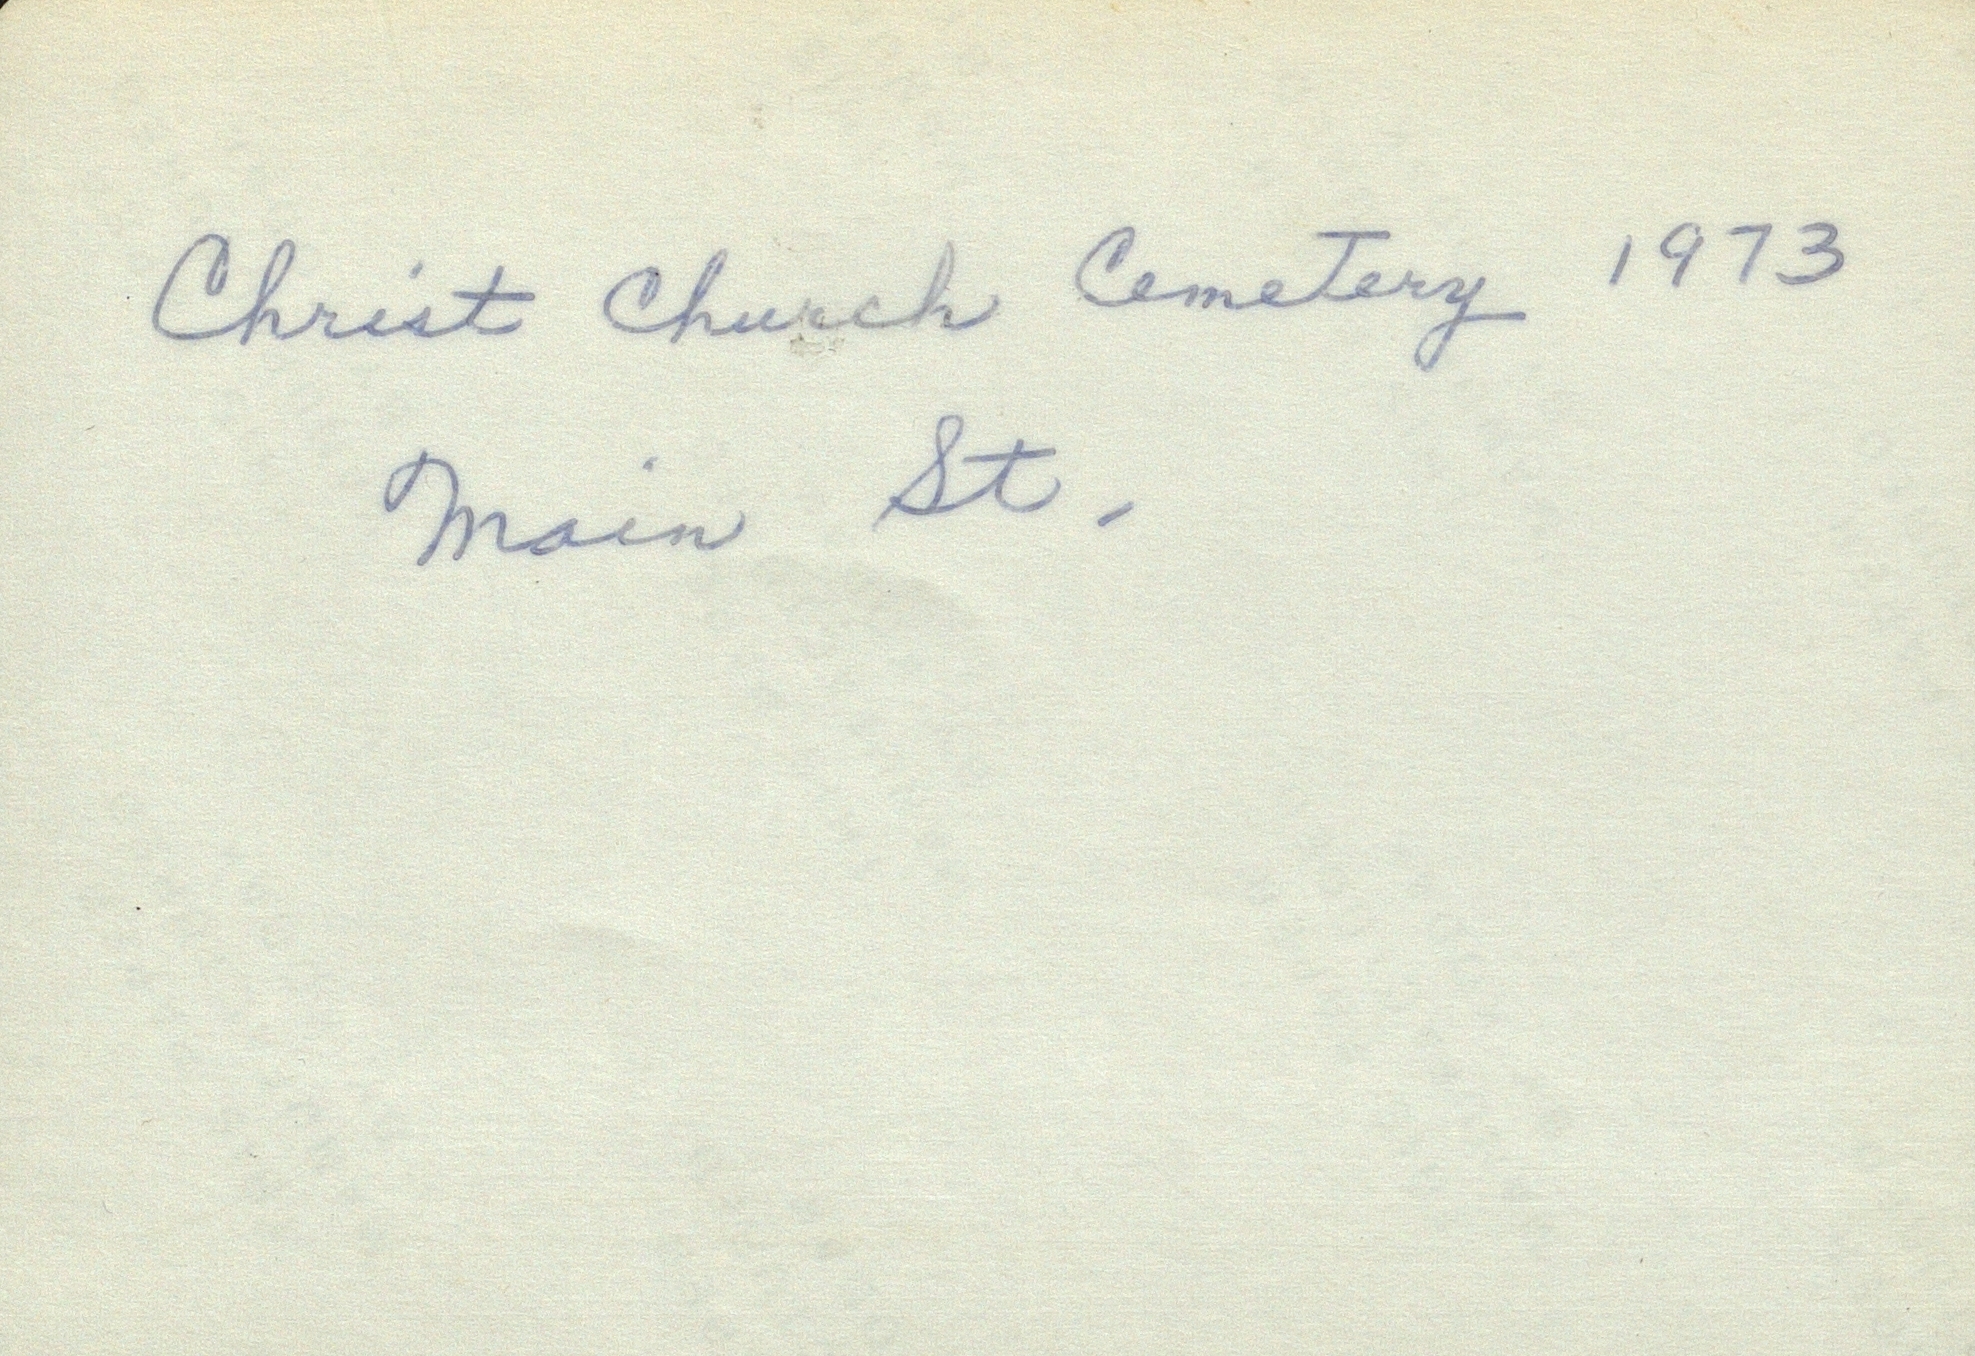 Christ Church Cemetery 1973
Main St.